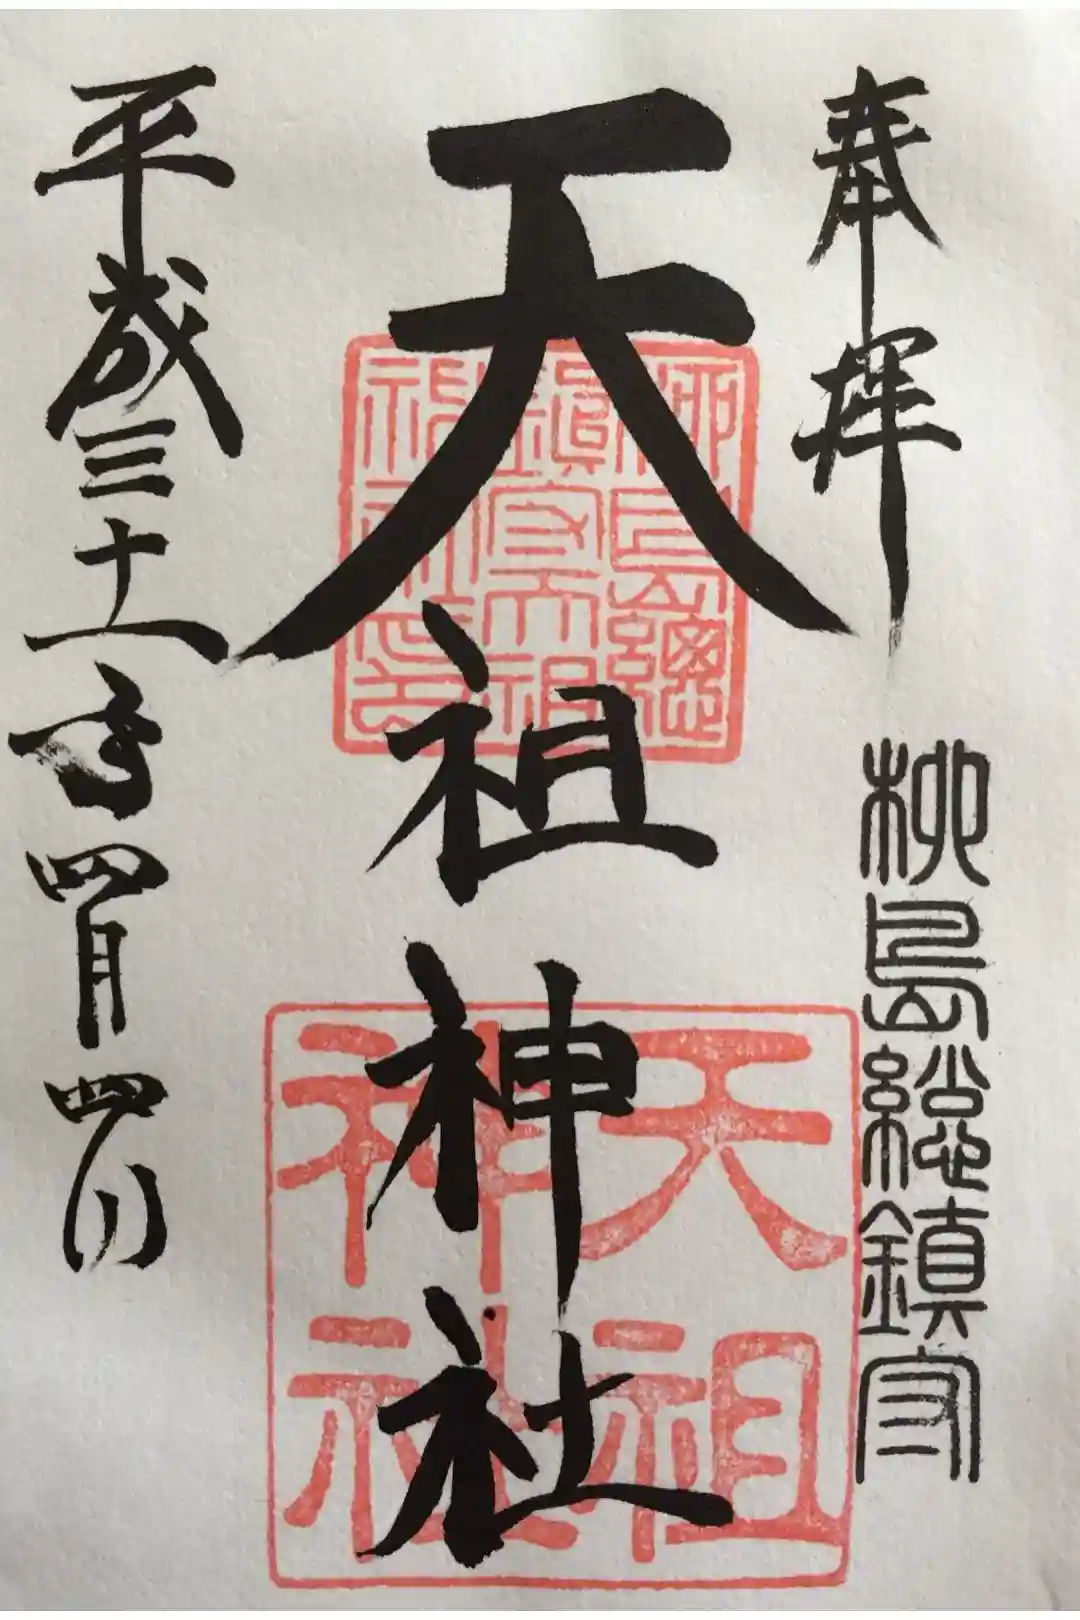 奉拝
柳島総鎮守
天祖神社
柳島總
鎮守天祖
神社
天祖
神社
平成三十一年四月四日